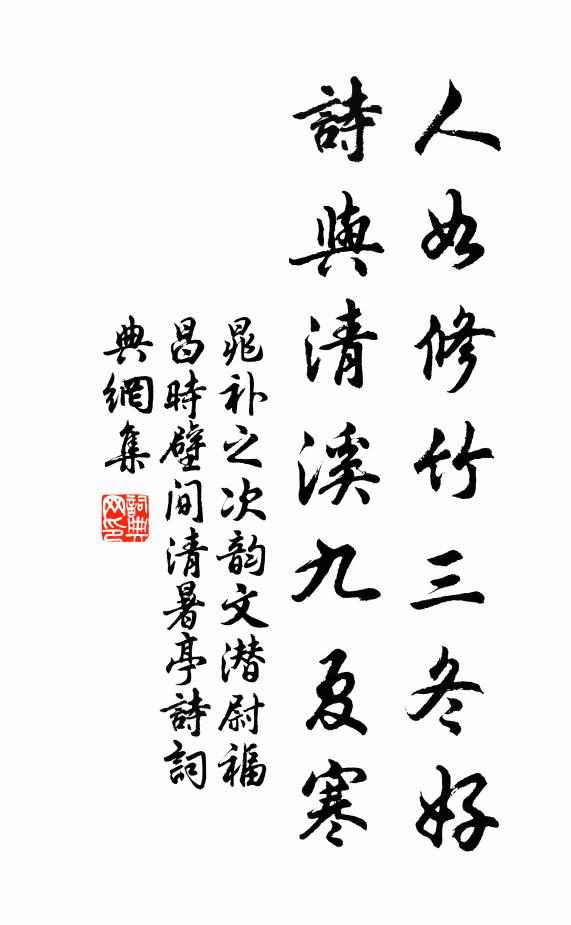 人如修竹三冬好
詩與清溪九夏寒
晁补之次韵文潜尉福
昌時壁间清暑亭詩詞
典網集
詞典网印